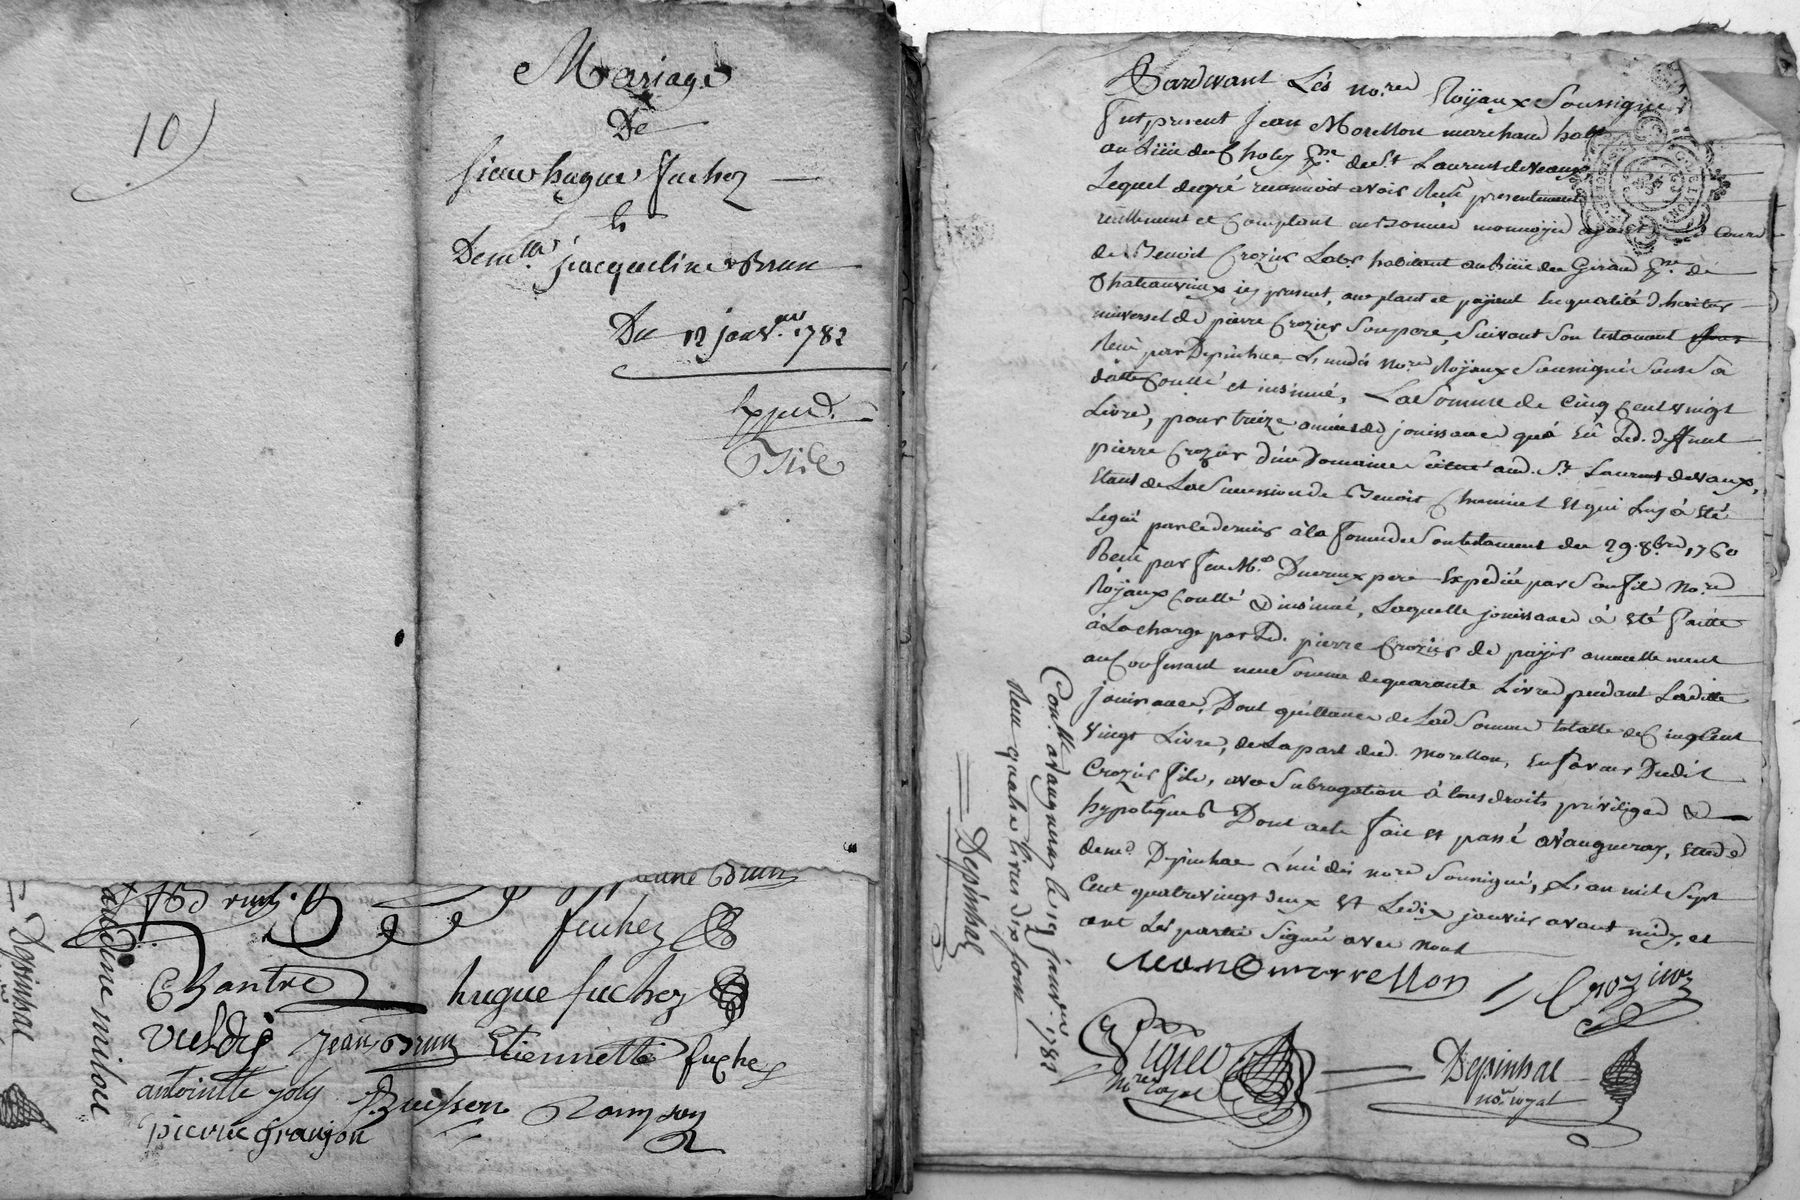 10)
Mariage
De
sieur hugue fuchez
&
Dem.lle jacqueline Brun
Du 12 janv.er 1782
Exped.
jeanne Brun
fuchez
Chantre hugue fuchez
jean Brun Etiennette fuchez
antoinette joly Buisson
pierre granjon
claudine milou
Depinhac
Pardevant Les no.res Royaux Soussignés
fut present Jean Morellon marchand habt
au Lieu du Choly p.sse de St Laurent de Vaux
Lequel de gré reconnoit avoir Receu presentement
reellement et Comptant en bonnes monnoyes ayant Cours
de Benoit Crozier Lab.r habitant au Lieu du Giraud p.sse de
Chateauvieux icy present, acceptant et payant En qualité d'heritier
universel de pierre Crozier Son pere, Suivant Son testament
Receu par Depinhac L'un des no.res Royaux Soussignés Sous Sa
datte Controllé et insinué, La Somme de Cinq Cent vingt
Livres, pour treize années de jouissance qu'a Eû Led. deffunt
pierre Crozier d'un Domaine Scitué aud. St Laurent de vaux,
Etant de La Succession de Benoit Chaminet et qui Luy a été
Legué par le dernier à la forme de Son testament du 29. 8bre 1760
Receu par feu M.e Ducreux pere Expedié par Son fils No.re
Royaux Controllé & insinué, Laquelle jouissance à été faitte
à La charge par Led. pierre Crozier de payer annuellement
au Confessant une Somme de quarante Livres pendant Laditte
jouissance, Dont quittance de Lad Somme totalle de Cinq Cent
vingt Livres, de La part dud. Morellon, En faveur Dudit
Crozier fils, avec Subrogation à tous droits privileges &
hypotéques Dont acte fait et passé à Vaugneray, Etude
de me Depinhac L'un des no.res Soussignés, L'an mil Sept
Cent quatre vingt deux et Le dix janvier avant midy, et
ont Les parties Signé avec nous
jean morrellon Crozier
Depinhac
no.re royal
no.re royal
Cont.llé à Vaugneray le 19 janv.er 1782
Receu quatre livres dix sous
Depinhac